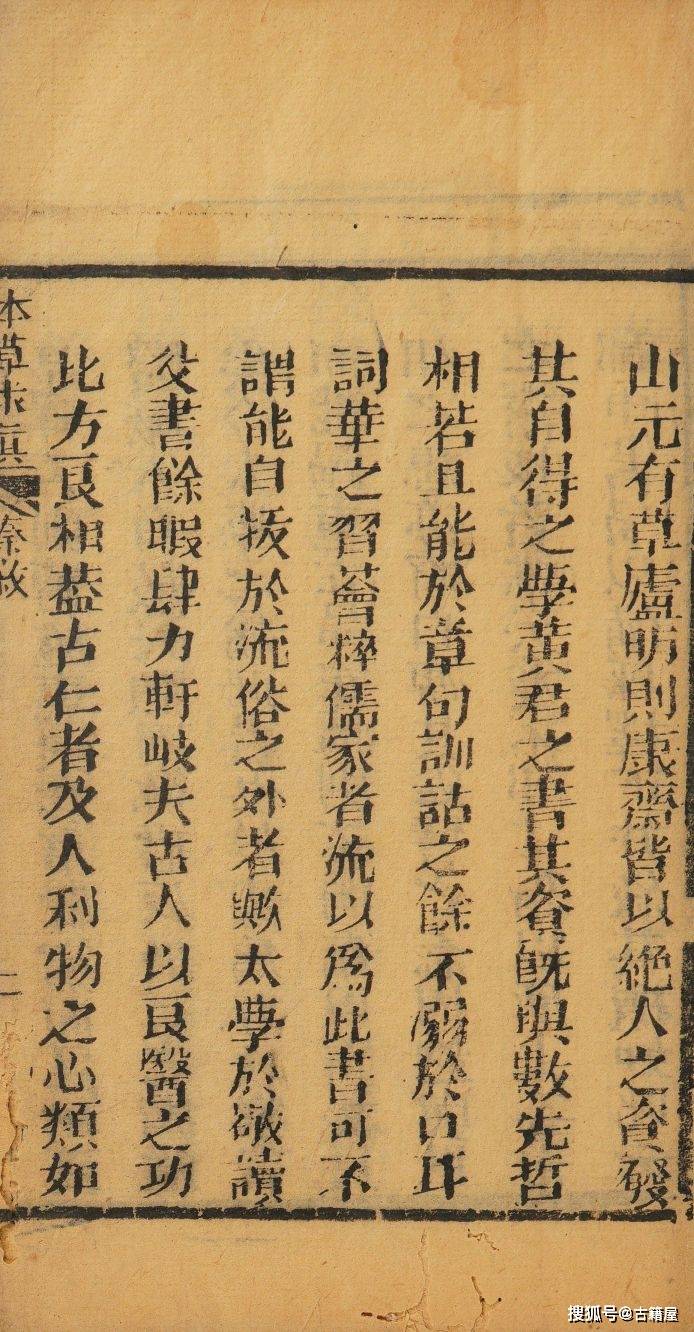 山元有草廬明則康齋皆以絕人之資發
其自得之學黃君之書其資旣與數先哲
相若且能於章句訓詁之餘不溺於口耳
詞華之習薈粹儒家者流以爲此書可不
謂能自拔於流俗之外者歟太學於敬讀
父書餘暇肆力軒岐夫古人以良醫之功
比方良相葢古仁者及人利物之心類如
本草求真 秦敘
二
搜狐号@古籍屋